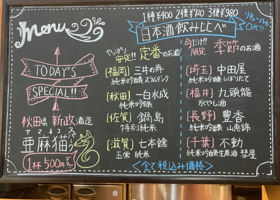 Menu
TODAY'S
SPECIAL!!
秋田県 新政酒造
亜麻猫
1杯500円
1種¥400 2種¥720 3種¥980
日本酒飲みくらべ
OK!!
やっぱり安定!! 定番のお酒
[福岡] 三井の寿
純米吟醸
[秋田] 一白水成
純米吟醸
[佐賀] 鍋島
特別純米
[滋賀] 七本鎗
玉栄 純米
今だけ!! 限定 季節のお酒
[埼玉] 中田屋
純米吟醸
[福井] 九頭龍
氷やし酒
[長野] 豊香
純米吟醸
[千葉] 不動
純米吟醸生原酒
<全て税込み価格>